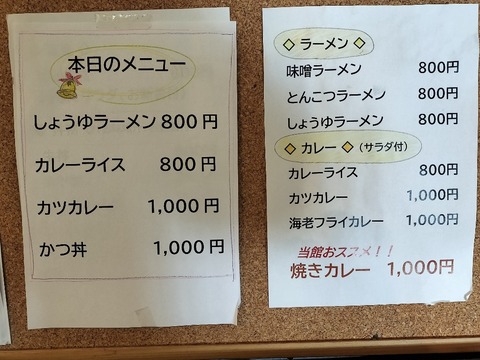 本日のメニュー
しょうゆラーメン 800円
カレーライス 800円
カツカレー 1,000円
かつ丼 1,000円
◇ ラーメン ◇
味噌ラーメン 800円
とんこつラーメン 800円
しょうゆラーメン 800円
◇ カレー ◇（サラダ付）
カレーライス 800円
カツカレー 1,000円
海老フライカレー 1,000円
当館おススメ！！
焼きカレー 1,000円